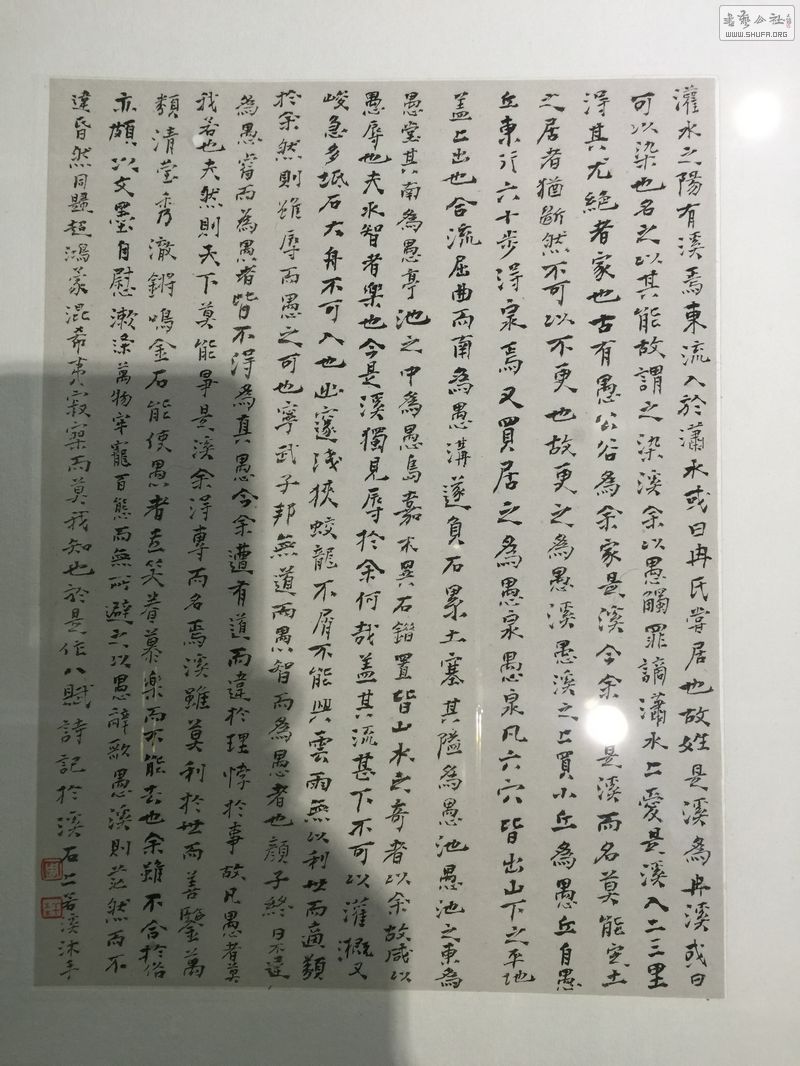 灌水之陽有溪焉東流入於瀟水或曰冉氏嘗居也故姓是溪為冉溪或曰
可以染也名之以其能故謂之染溪余以愚觸罪謫瀟水上愛是溪入二三里
得其尤絕者家也古有愚公谷為余家是溪今余是溪而名莫能定土
之居者猶齗然不可以不更也故更之為愚溪愚溪之上買小丘為愚丘自愚
丘東行六十步得泉焉又買居之為愚泉愚泉凡六穴皆出山下之平地
盖上出也合流屈曲而南為愚溝遂負石累土塞其隘為愚池愚池之東為
愚堂其南為愚亭池之中為愚島嘉木異石錯置皆山水之奇者以余故咸以
愚辱也夫水智者樂也今是溪獨見辱於余何哉盖其流甚下不可以灌溉又
峻急多坻石大舟不可入也幽邃淺狹蛟龍不屑不能興雲雨無以利世而適類
於余然則雖辱而愚之可也寧武子邦無道而愚智而為愚者也顏子終日不違
為愚睿而為愚者皆不得為真愚今余遭有道而違於理悖於事故凡愚者莫
我若也夫然則天下莫能爭是溪余得專而名焉溪雖莫利於世而善鑒萬
類清瑩秀澈鏘鳴金石能使愚者喜笑眷慕樂而不能去也余雖不合於俗
亦頗以文墨自慰漱滌萬物牢籠百態而無所避之以愚辭歌愚溪則茫然而不
違昏然同歸超鴻蒙混希夷寂寥而莫我知也於是作八賦詩記於溪石上若溪沐手
書藝公社
WWW.SHUFA.ORG